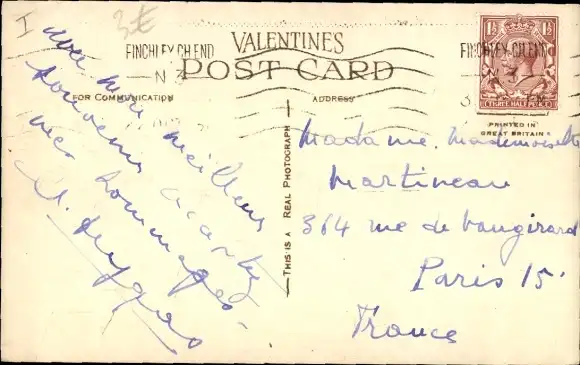 I
3£
FINCHLEY CH. END
N 3
VALENTINES
POST CARD
FINCHLEY CH. END
N. 3.
1½ 1½
THREE HALF PENCE
PRINTED IN
GREAT BRITAIN
FOR COMMUNICATION
ADDRESS
THIS IS A REAL PHOTOGRAPH
avec mes meilleurs
souvenirs acceptez
mes hommages.
Madame, Mademoiselle
Martineau
364 rue de Vaugirard
Paris 15.
France